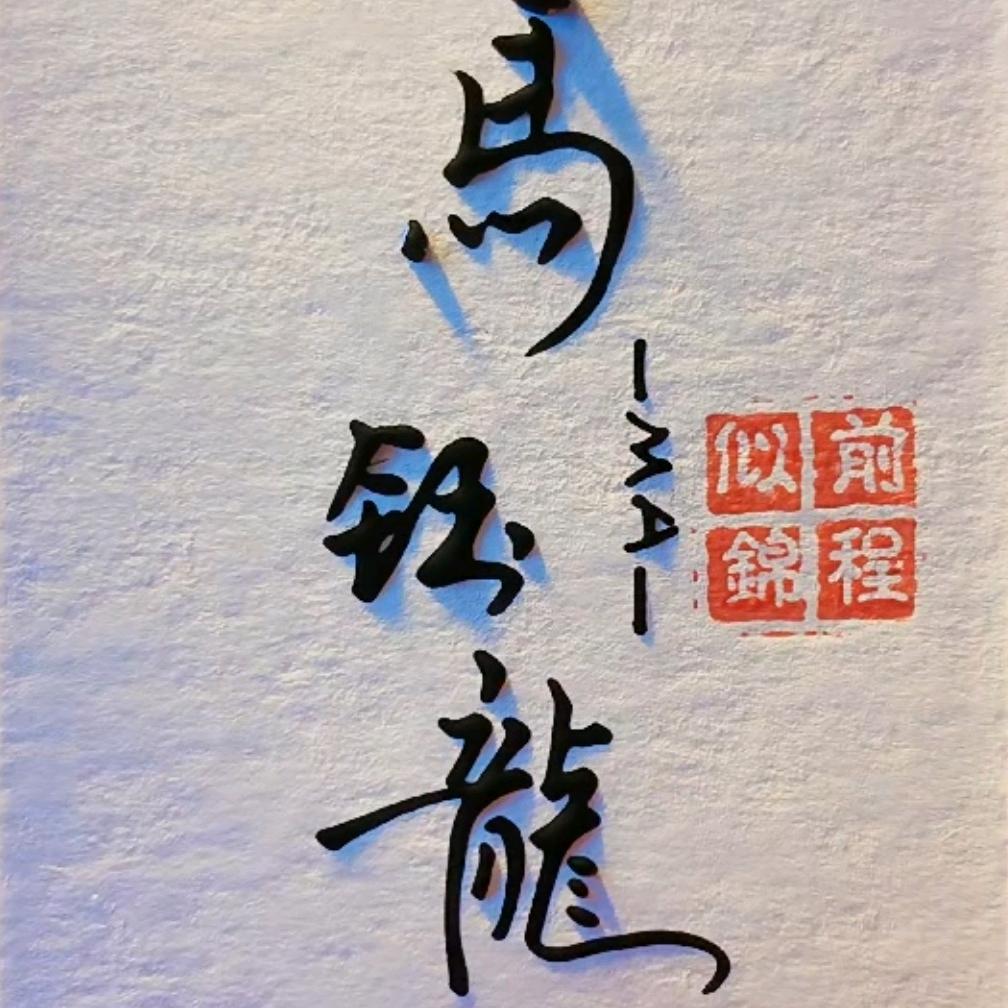 馬鈺龍
-MA-
前程
似錦